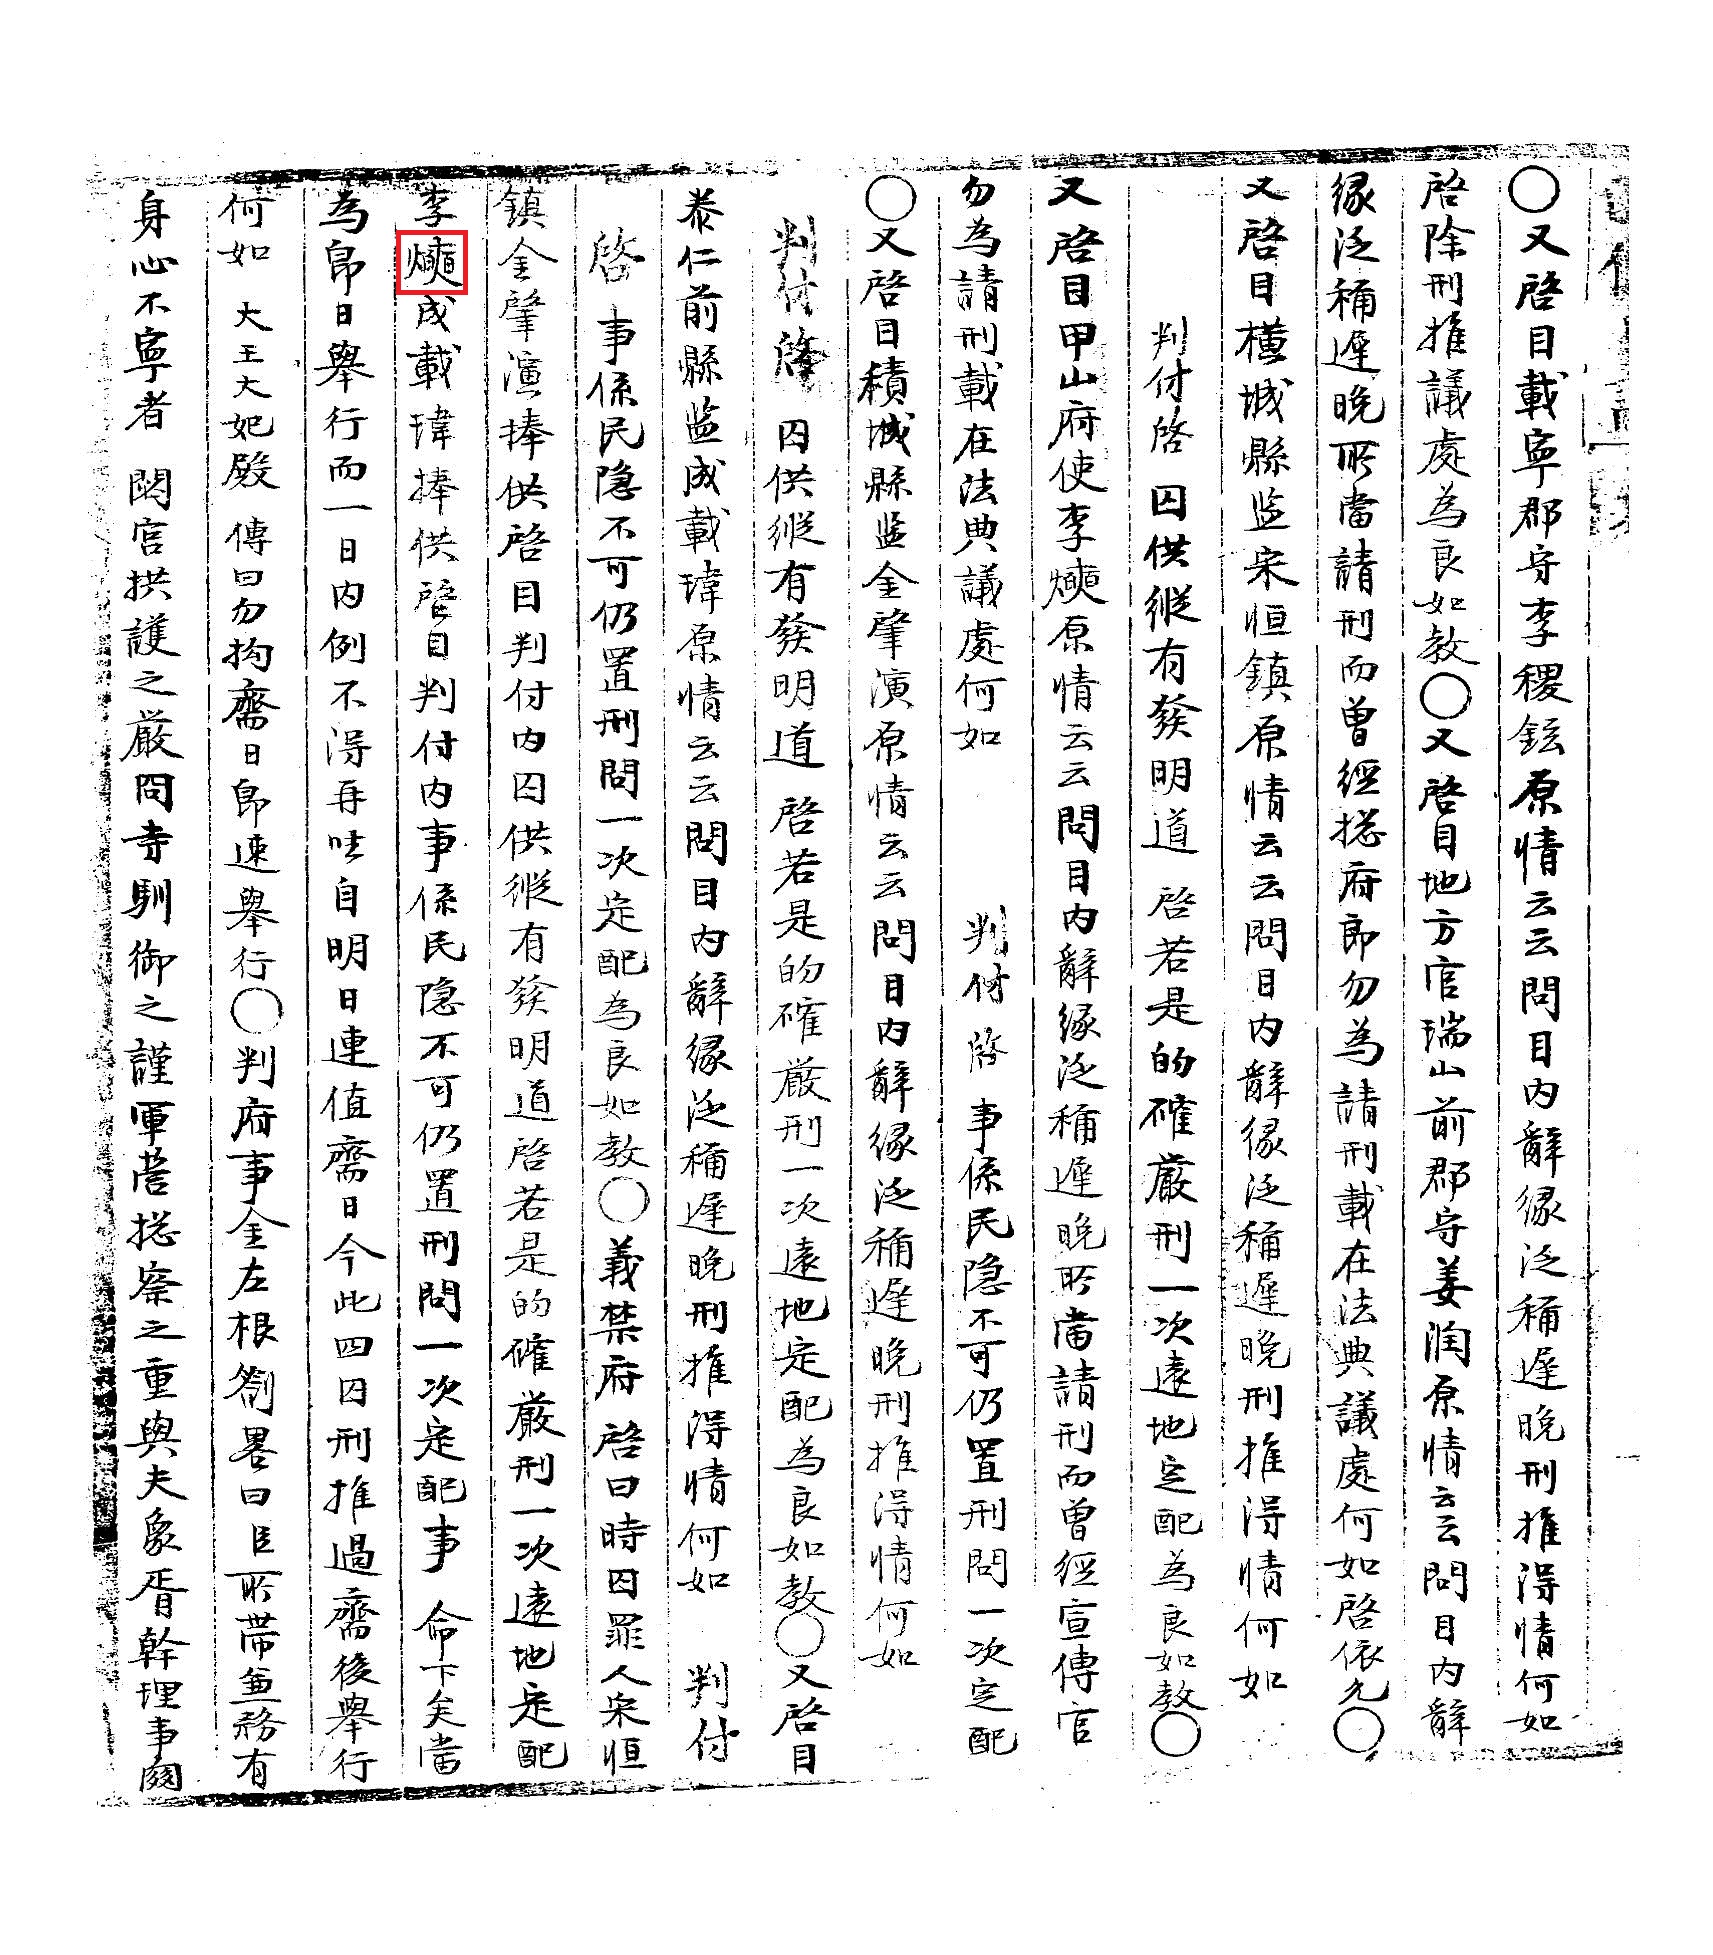 ○又啓目載寧郡守李稷鉉原情云云問目內辭緣泛稱遲晩刑推得情何如
啓除刑推議處爲良如敎○又啓目地方官瑞山前郡守姜潤原情云云問目內辭
緣泛稱遲晩所當請刑而曾經摠府郞勿爲請刑載在法典議處何如啓依允○
又啓目橫城縣監宋恒鎭原情云云問目內辭緣泛稱遲晩刑推得情何如
判付啓 囚供縱有發明道 啓若是的確嚴刑一次遠地定配爲良如敎○
又啓目甲山府使李原情云云問目內辭緣泛稱遲晩所當請刑而曾經宣傳官
勿爲請刑載在法典議處何如 判付啓 事係民隱不可仍置刑問一次定配
○又啓目積城縣監金肇演原情云云問目內辭緣泛稱遲晩刑推得情何如
判付啓 囚供縱有發明道 啓若是的確嚴刑一次遠地定配爲良如敎○又啓目
泰仁前縣監成載瑋原情云云問目內辭緣泛稱遲晩刑推得情何如 判付
啓 事係民隱不可仍置刑問一次定配爲良如敎○義禁府 啓曰時囚罪人宋恒
鎭金肇演捧供啓目判付內囚供縱有發明道啓若是的確嚴刑一次遠地定配
李成載瑋捧供啓目判付內事係民隱不可仍置刑問一次定配事 命下矣當
爲卽日擧行而一日內例不得再哇自明日連値齋日今此四囚刑推過齋後擧行
何如 大王大妃殿 傳曰勿拘齋日卽速擧行○判府事金左根箚畧曰臣所帶兼務有
身心不寧者 闕宮拱護之嚴問寺馴御之謹軍營摠察之重與夫象胥幹理事闕